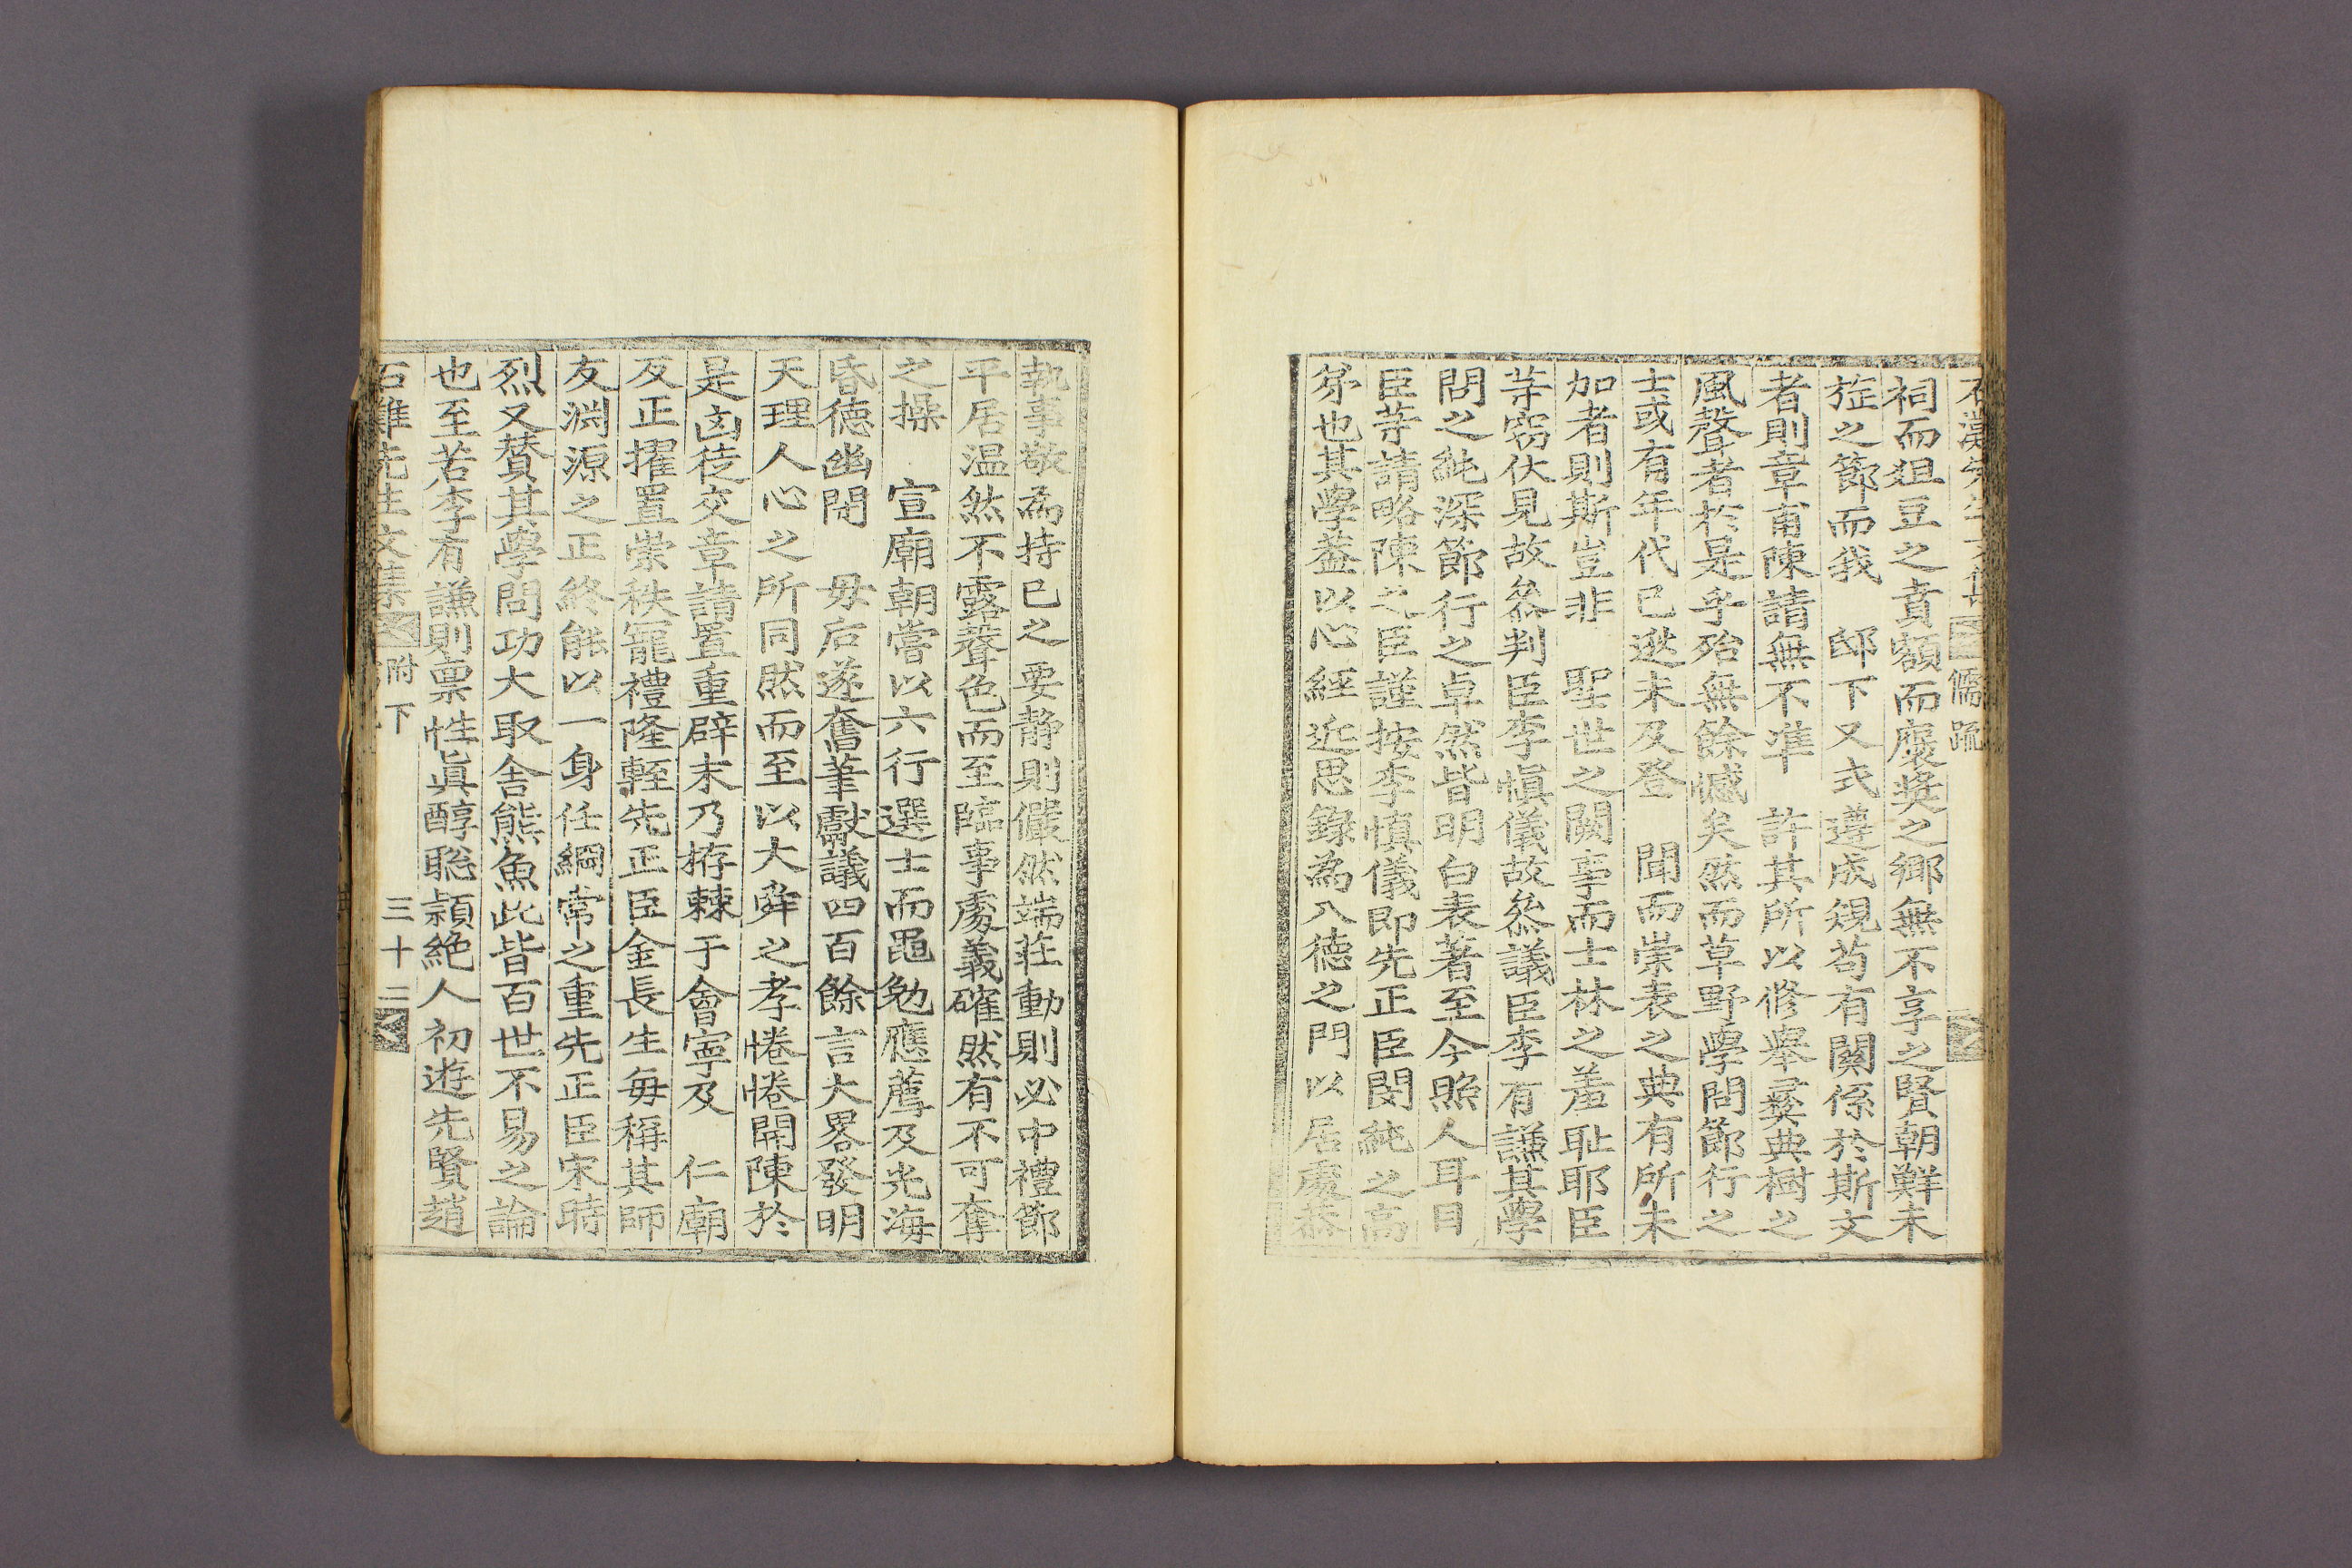 石灘先生文集 儒䟽
祠而俎豆之賁額而褒奬之鄉無不享之賢朝鮮未
㫌之節而我 邸下又式遵成規苟有關係於斯文
者則章甫陳請無不準 許其所以修擧彛典樹之
風聲者於是乎殆無餘憾矣然而草野學問節行之
士或有年代已逖未及登 聞而崇表之典有所未
加者則斯豈非 聖世之闕事而士林之羞耻耶臣
等窃伏見故叅判臣李愼儀故叅議臣李有謙其學
問之純深節行之卓然皆明白表著至今照人耳目
臣等請略陳之臣謹按李愼儀即先正臣閔純之高
弟也其學盖以心經近思錄為入德之門以居處恭
執事敬為持己之要静則儼然端莊動則必中禮節
平居温然不露聲色而至臨事處義確然有不可奪
之操 宣廟朝嘗以六行選士而黽勉應薦及光海
昏德幽閉 毋后遂奮筆獻議四百餘言大畧發明
天理人心之所同然而至以大舜之孝惓惓開陳於
是凶徒交章請置重辟末乃栫棘于會寧及 仁廟
反正擢置崇秩寵禮隆輊先正臣金長生每稱其師
友渊源之正終能以一身任綱常之重先正臣宋時
烈又賛其學問功大取舍熊魚此皆百世不易之論
也至若李有謙則禀性眞醇聡頴絶人初遊先賢趙
石灘先生文集 附下 三十二